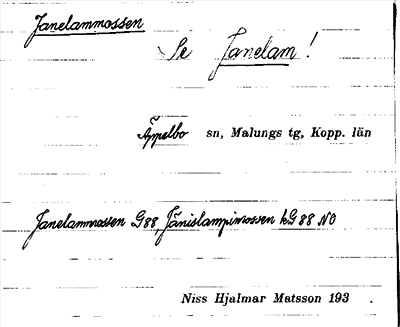 Janelammossen
Se Janelam!
Äppelbo sn, Malungs tg, Kopp. län
Janelammossen G88, Jänislampimossen kG 88 NO
Niss Hjalmar Matsson 193 .